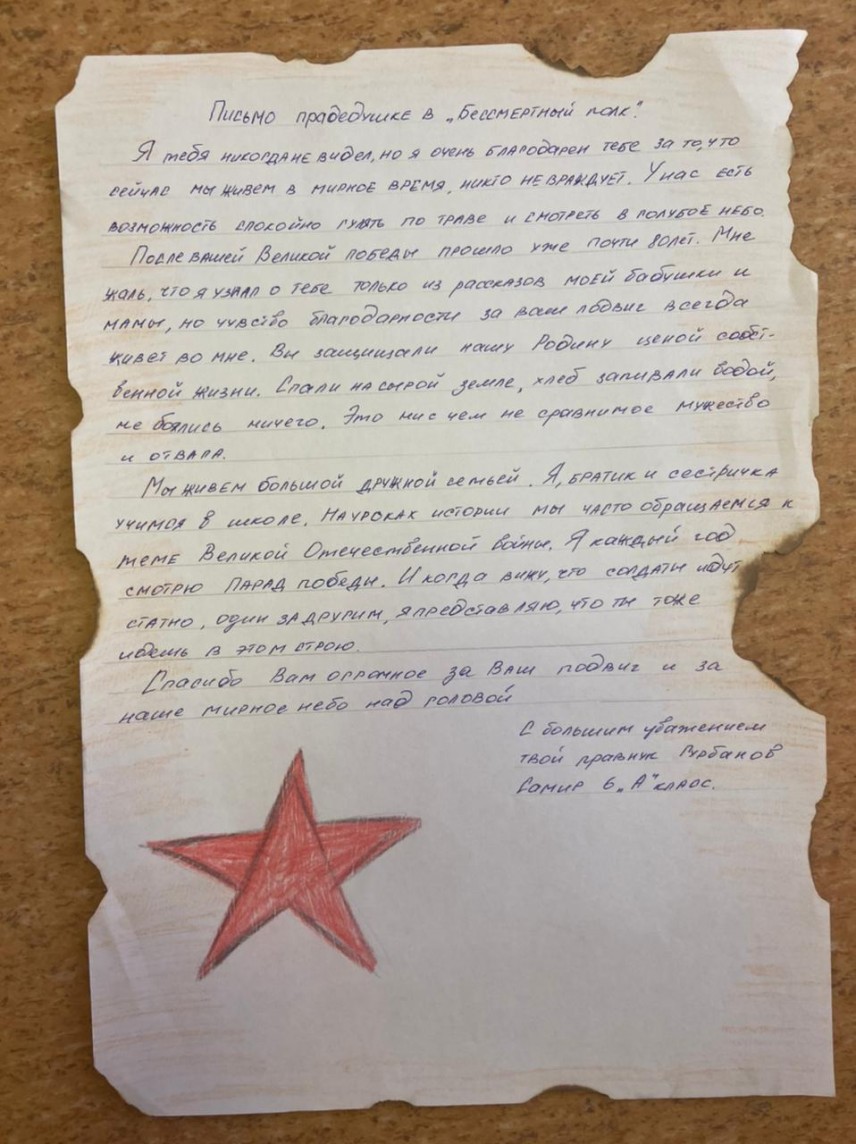 Письмо прадедушке в „Бессмертный полк".
Я тебя никогда не видел, но я очень благодарен тебе за то, что
сейчас мы живем в мирное время, никто не враждует. У нас есть
возможность спокойно гулять по траве и смотреть в голубое небо.
После вашей Великой победы прошло уже почти 80 лет. Мне
жаль, что я узнал о тебе только из рассказов моей бабушки и
мамы, но чувство благодарности за ваш подвиг всегда
живет во мне. Вы защищали нашу Родину ценой собст-
венной жизни. Спали на сырой земле, хлеб запивали водой,
не боялись ничего. Это ни с чем не сравнимое мужество
и отвага.
Мы живем большой дружной семьей. Я, братик и сестричка
учимся в школе. На уроках истории мы часто обращаемся к
теме Великой Отечественной войны. Я каждый год
смотрю парад победы. И когда вижу, что солдаты идут
статно, один за другим, я представляю, что ты тоже
идешь в этом строю.
Спасибо Вам огромное за Ваш подвиг и за
наше мирное небо над головой
С большим уважением
твой правнук Гурбанов
Самир 6 „А" класс.